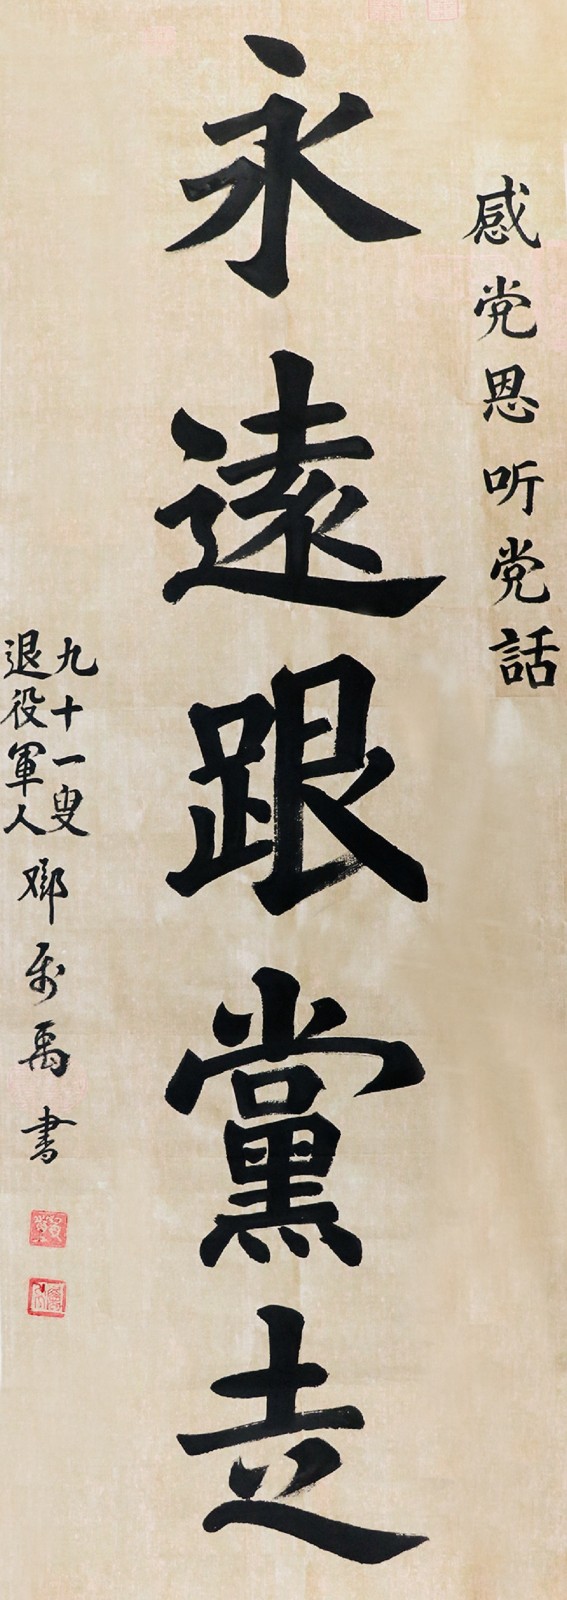 感党恩听党话
永遠跟黨走
九十一叟
退役軍人鄧万禹書